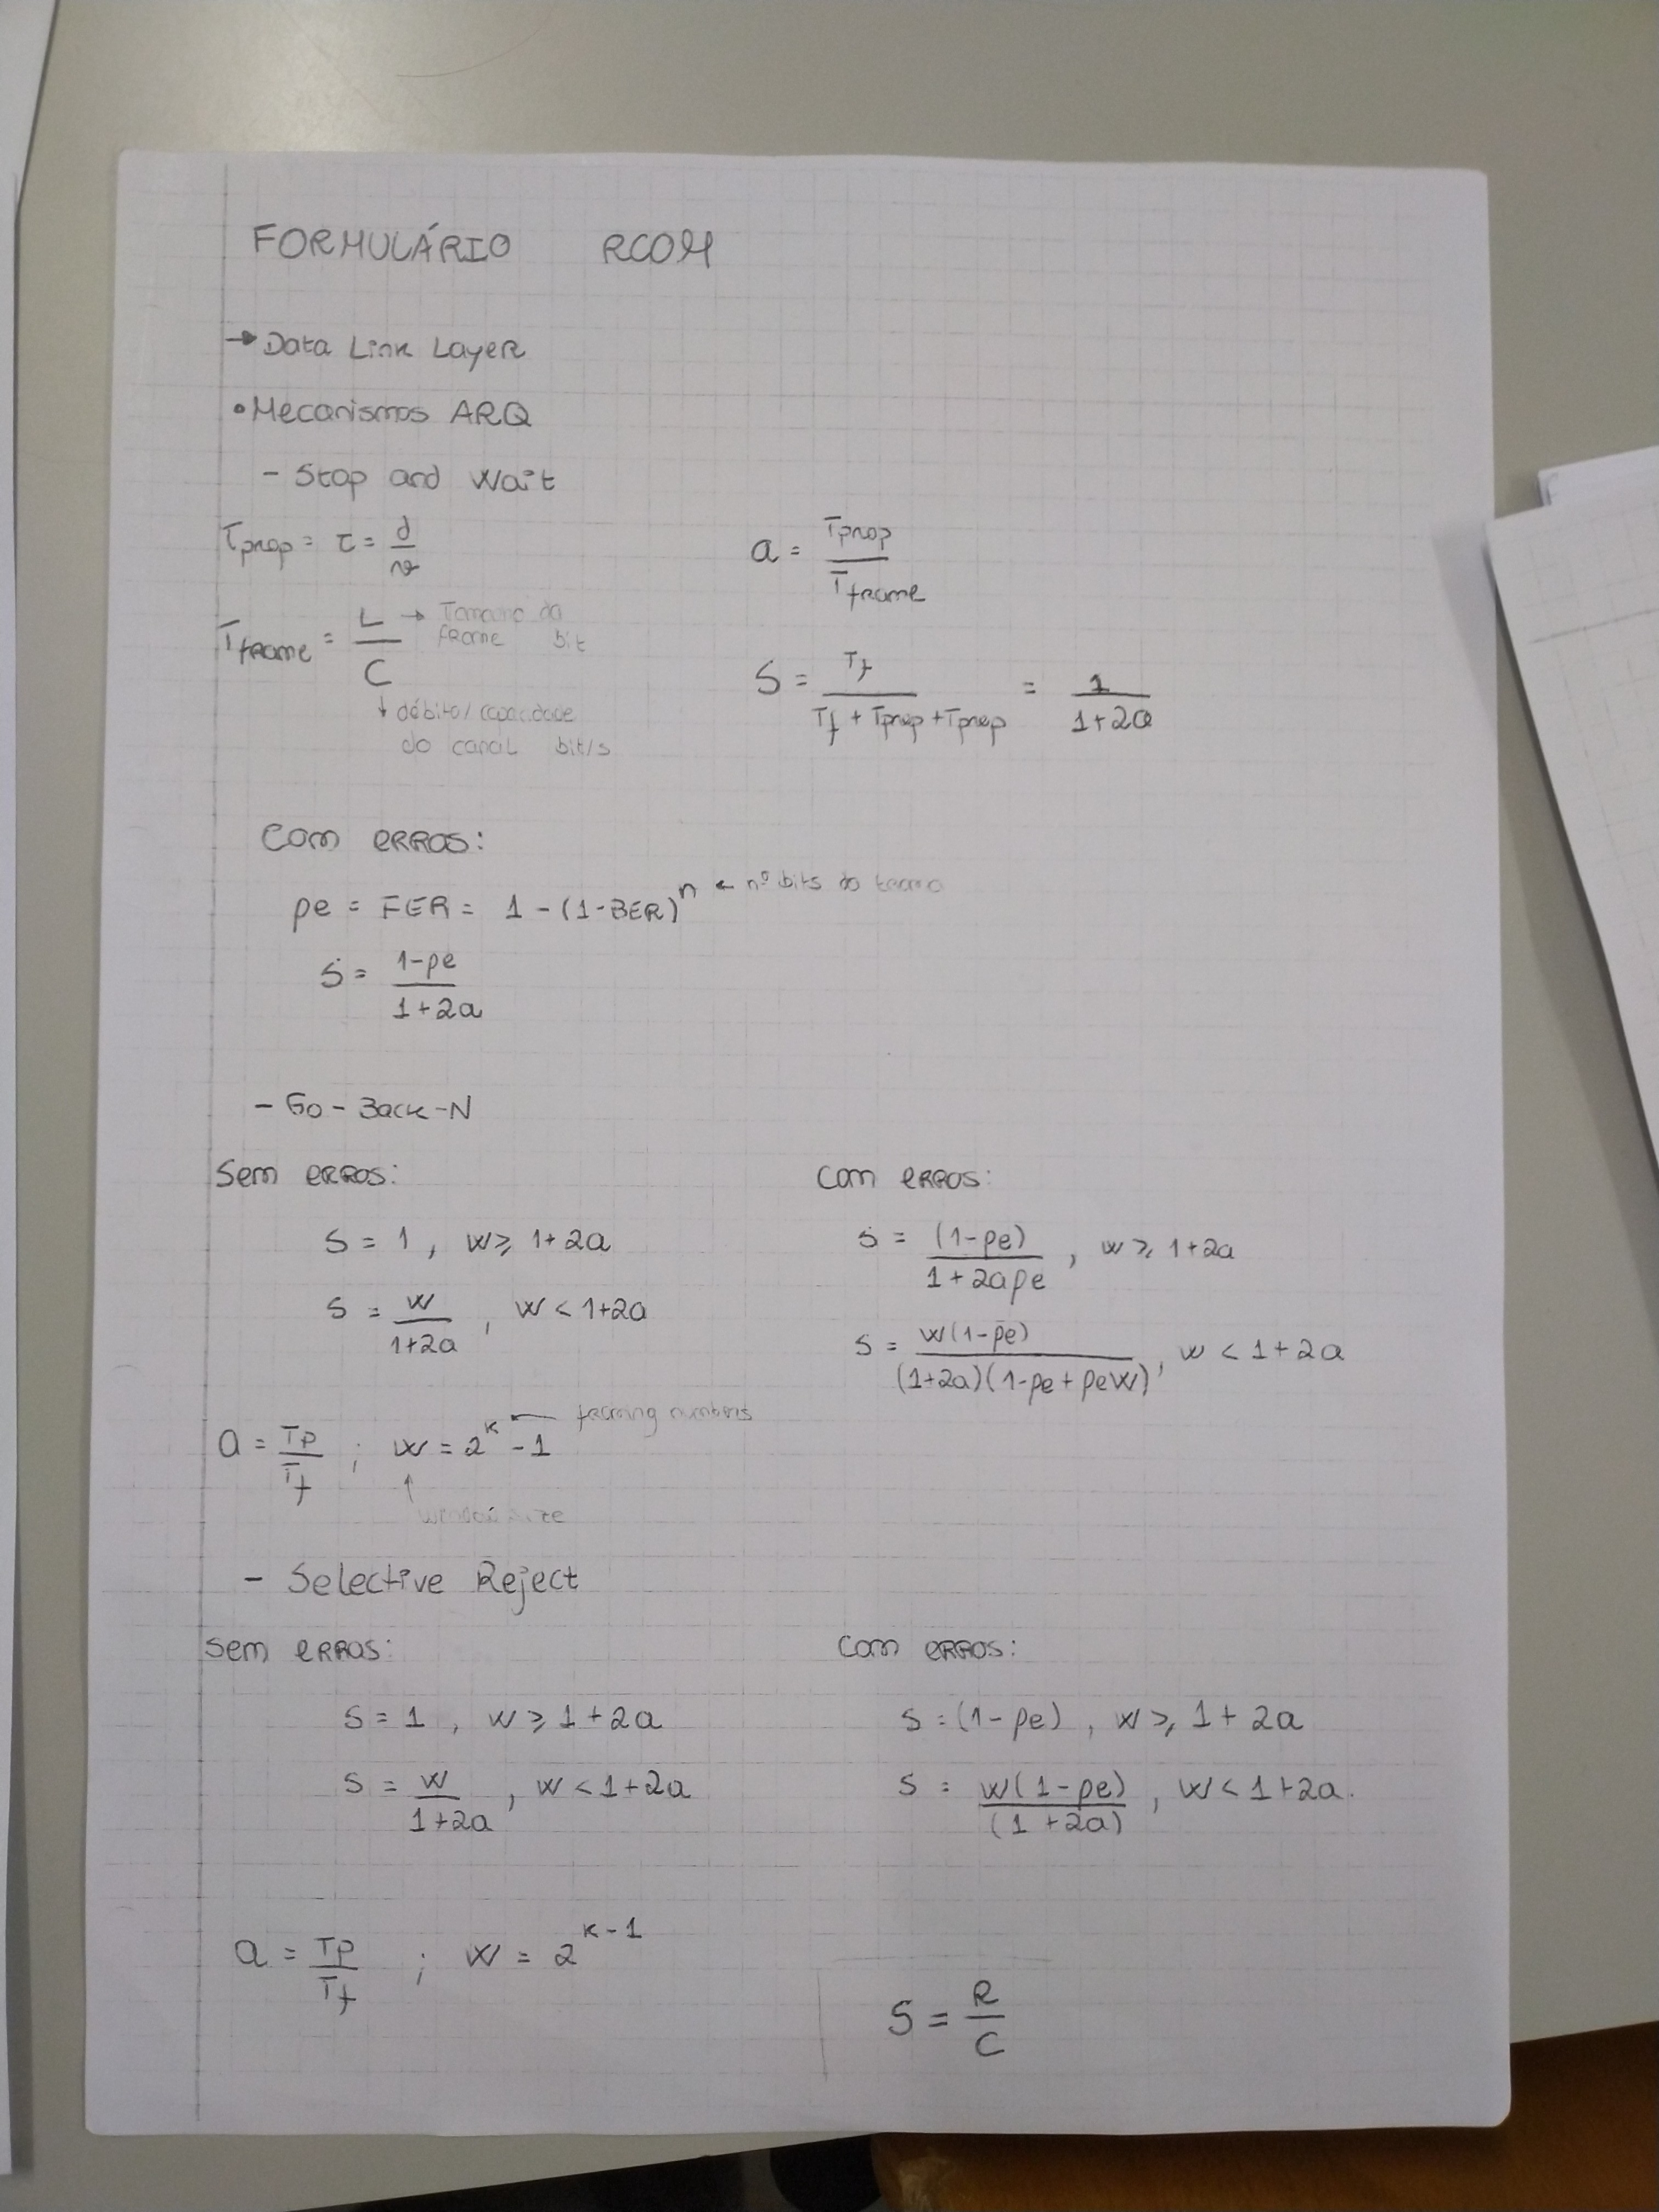 FORMULÁRIO RCOM
→ Data Link Layer
• Mecanismos ARQ
- Stop and Wait
Tprop = τ = d/v
a = Tprop/Tframe
Tframe = L/C
→ Tamanho da frame bit
↓ débito/capacidade do canal bit/s
S = Tf/(Tf + Tprop + Tprop) = 1/(1+2a)
Com erros:
pe = FER = 1 - (1-BER)^n ← nº bits da trama
S = (1-pe)/(1+2a)
- Go-Back-N
Sem erros:
S = 1, W ≥ 1+2a
S = W/(1+2a), W < 1+2a
Com erros:
S = (1-pe)/(1+2ape), W ≥ 1+2a
S = W(1-pe)/((1+2a)(1-pe+peW)), W < 1+2a
a = Tp/Tf ; W = 2^k - 1
← framing numbers
↑ window size
- Selective Reject
Sem erros:
S = 1, W ≥ 1+2a
S = W/(1+2a), W < 1+2a
Com erros:
S = (1-pe), W ≥ 1+2a
S = W(1-pe)/(1+2a), W < 1+2a.
a = Tp/Tf ; W = 2^(k-1)
S = R/C